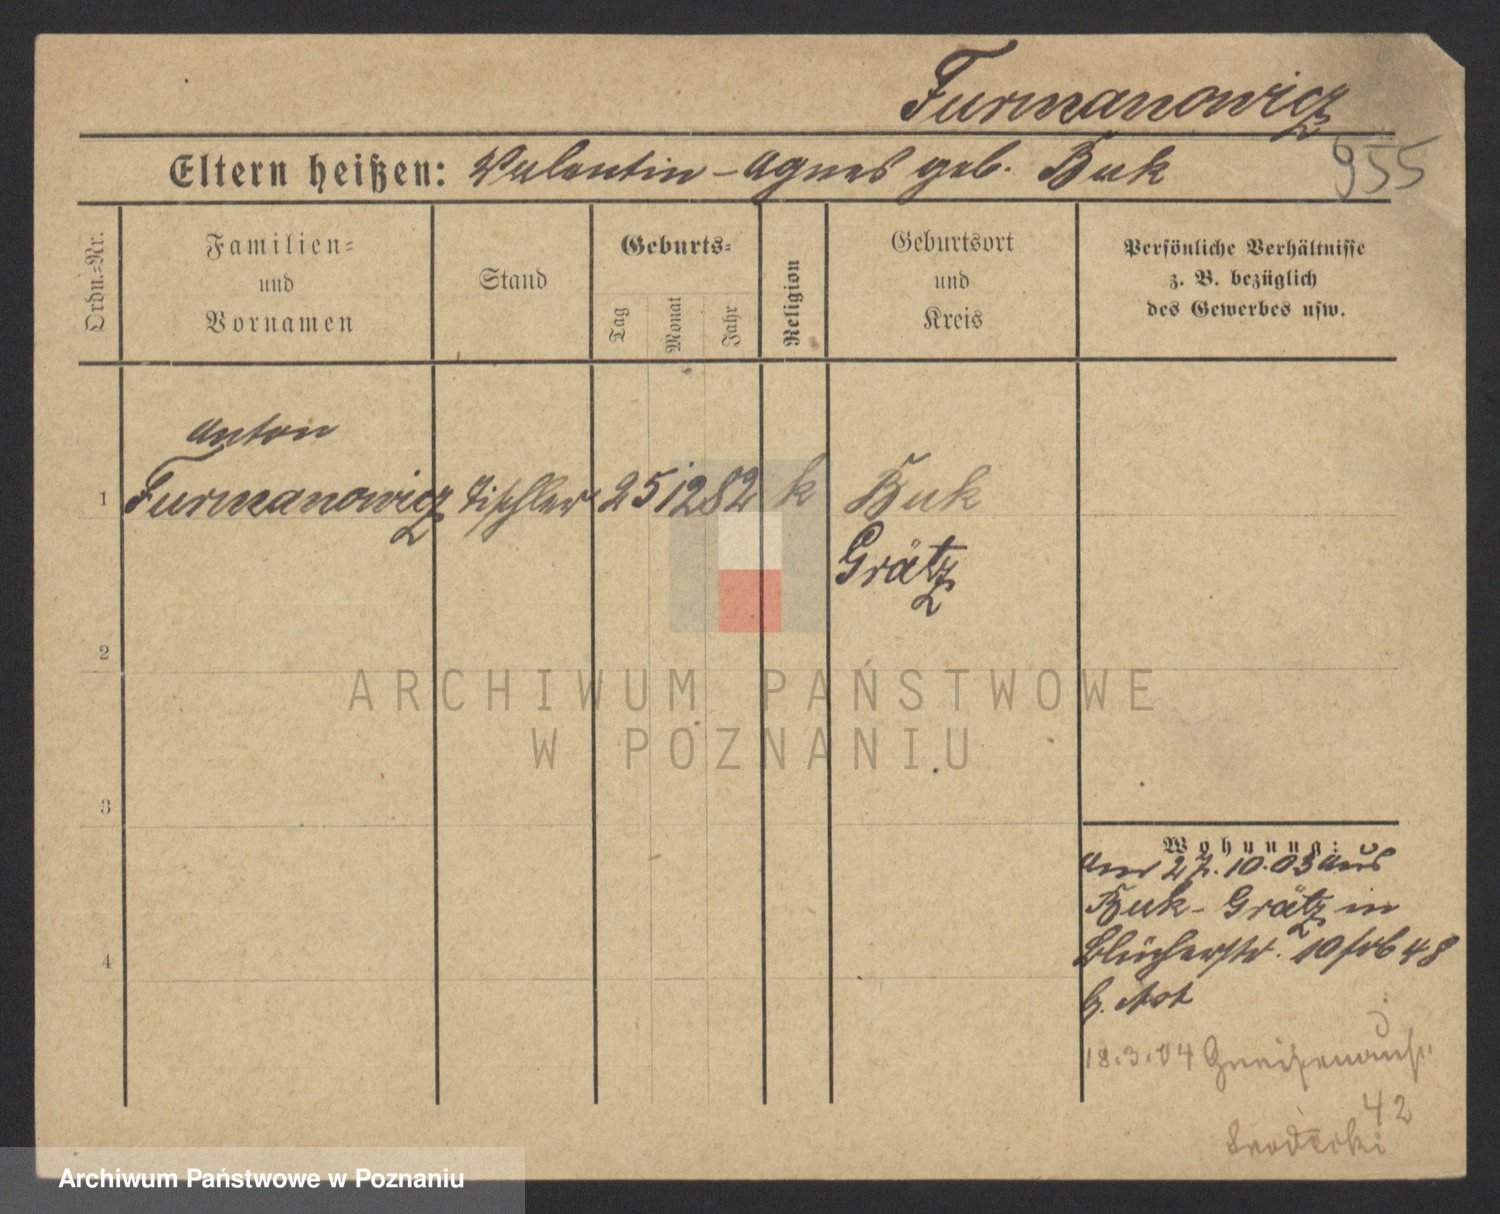 Furmanowicz
955
Eltern heißen: Valentin - Agnes geb. Buk
Ordn.-Nr.
Familien-
und
Vornamen
Stand
Geburts-
Tag
Monat
Jahr
Religion
Geburtsort
und
Kreis
Persönliche Verhältnisse
z. B. bezüglich
des Gewerbes usw.
Anton
1 Furmanowicz Tischler 25 12 82 k Buk
Grätz
2
ARCHIWUM PAŃSTWOWE
W POZNANIU
3
Wohnung:
am 27.10.03 aus
Buk - Grätz in
Blücherstr. 10
4
18.3.04 Gneisenaustr.
42
Archiwum Państwowe w Poznaniu